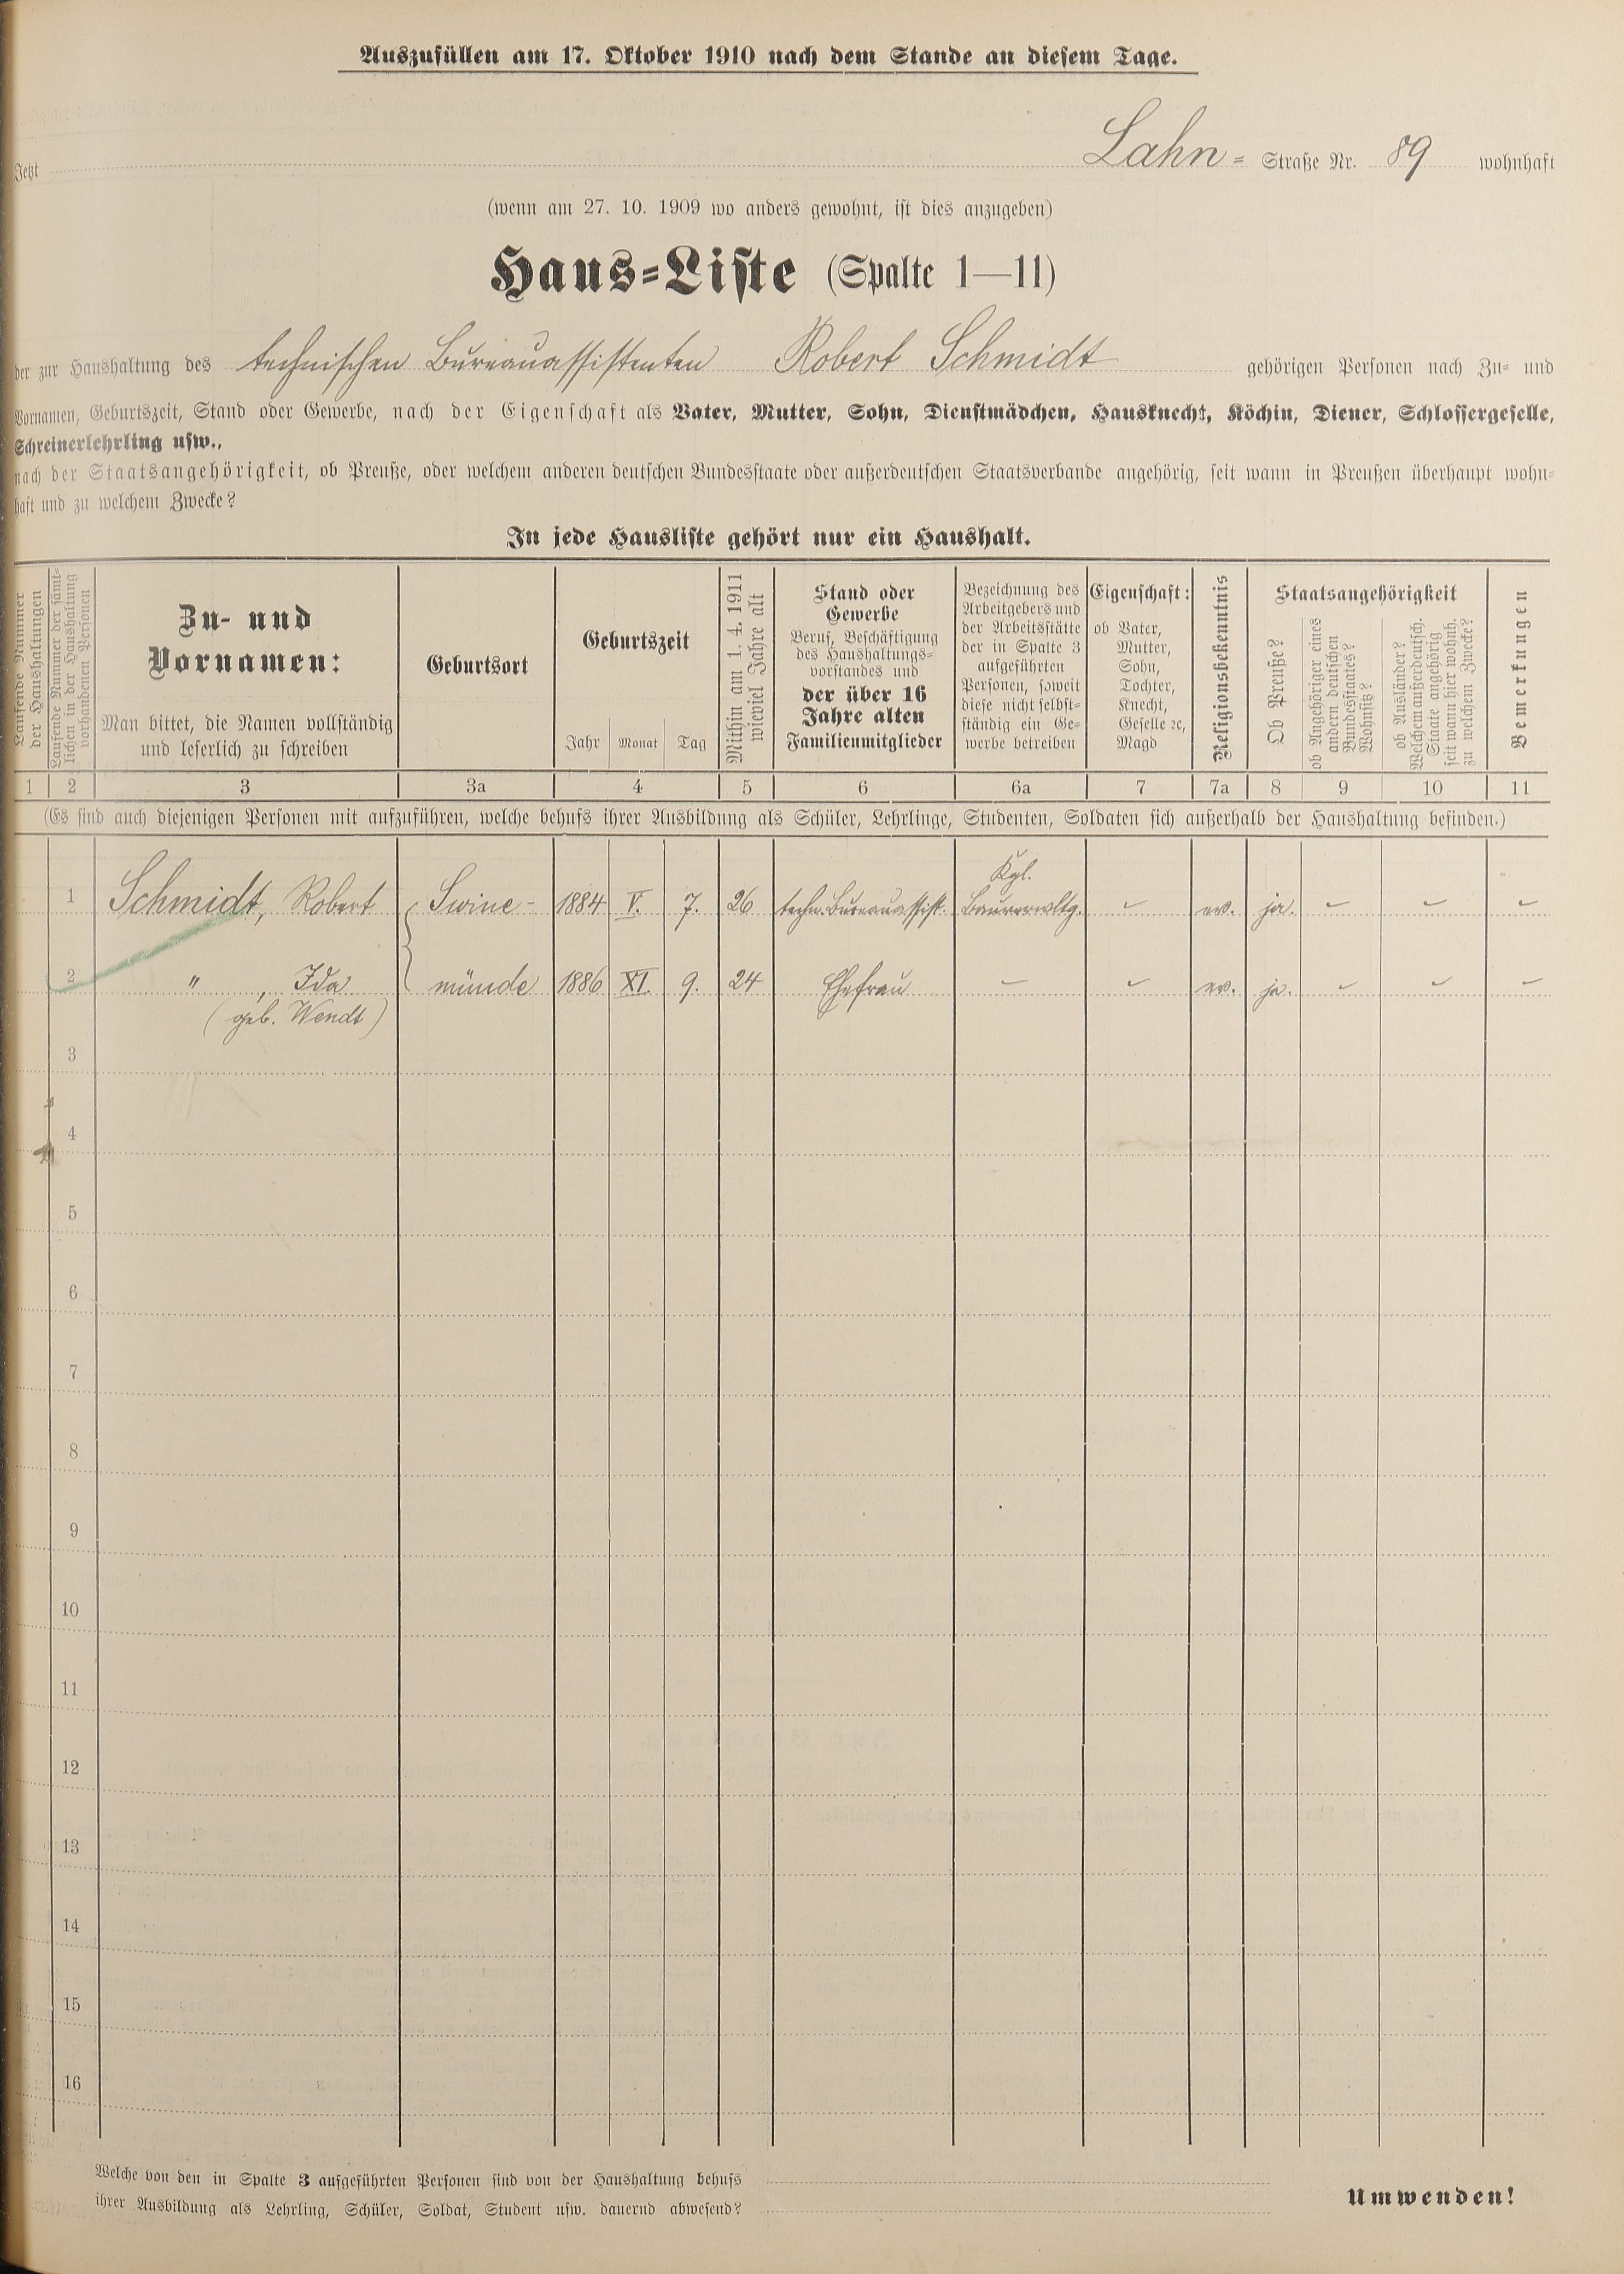 Auszufüllen am 17. Oktober 1910 nach dem Stande an diesem Tage.
Jetzt Lahn= Straße Nr. 89 wohnhaft
(wenn am 27. 10. 1909 wo anders gewohnt, ist dies anzugeben)
Haus=Liste (Spalte 1—11)
der zur Haushaltung des technischen Bureauassistenten Robert Schmidt gehörigen Personen nach Zu= und
Vornamen, Geburtszeit, Stand oder Gewerbe, nach der Eigenschaft als Vater, Mutter, Sohn, Dienstmädchen, Hausknecht, Köchin, Diener, Schlossergeselle,
Schreinerlehrling usw.,
nach der Staatsangehörigkeit, ob Preuße, oder welchem anderen deutschen Bundesstaate oder außerdeutschen Staatsverbande angehörig, seit wann in Preußen überhaupt wohn=
haft und zu welchem Zwecke?
In jede Hausliste gehört nur ein Haushalt.
Laufende Nummer
der Haushaltungen
Laufende Nummer der sämt=
lichen in der Haushaltung
vorhandenen Personen
Zu- und
Vornamen:
Man bittet, die Namen vollständig
und leserlich zu schreiben
Geburtsort
Geburtszeit
Jahr Monat Tag
Mithin am 1. 4. 1911
wieviel Jahre alt
Stand oder
Gewerbe
Beruf, Beschäftigung
des Haushaltungs=
vorstandes und
der über 16
Jahre alten
Familienmitglieder
Bezeichnung des
Arbeitgebers und
der Arbeitsstätte
der in Spalte 3
aufgeführten
Personen, soweit
diese nicht selbst=
ständig ein Ge=
werbe betreiben
Eigenschaft:
ob Vater,
Mutter,
Sohn,
Tochter,
Knecht,
Geselle ꝛc,
Magd
Religionsbekenntnis
Staatsangehörigkeit
Ob Preuße?
ob Angehöriger eines
andern deutschen
Bundesstaates?
Wohnsitz?
ob Ausländer?
Welchem außerdeutsch.
Staate angehörig
seit wann hier wohnh.
zu welchem Zwecke?
Bemerkungen
1 2 3 3a 4 5 6 6a 7 7a 8 9 10 11
(Es sind auch diejenigen Personen mit aufzuführen, welche behufs ihrer Ausbildung als Schüler, Lehrlinge, Studenten, Soldaten sich außerhalb der Haushaltung befinden.)
Kgl.
1 Schmidt, Robert Swine- 1884 V. 7. 26 techn. Bureauassist. Bauverwaltg. - ev. ja. - - -
2 " , Ida münde 1886 XI. 9. 24 Ehefrau - - ev. ja. - - -
(geb. Wendt)
3
4
5
6
7
8
9
10
11
12
13
14
15
16
Welche von den in Spalte 3 aufgeführten Personen sind von der Haushaltung behufs
ihrer Ausbildung als Lehrling, Schüler, Soldat, Student usw. dauernd abwesend?
Umwenden!